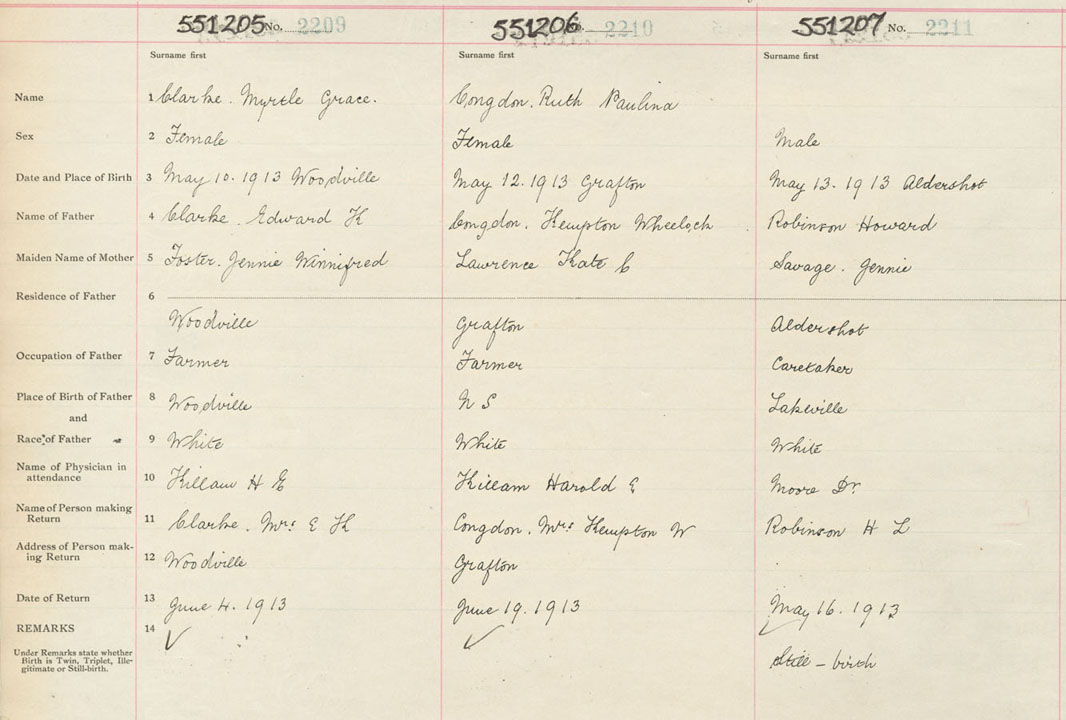 551205 No. 2209 551206 No. 2210 551207 No. 2211
Surname first Surname first Surname first
Name 1 Clarke. Myrtle Grace. Congdon. Ruth Paulina
Sex 2 Female Female Male
Date and Place of Birth 3 May 10. 1913 Woodville May 12. 1913 Grafton May 13. 1913 Aldershot
Name of Father 4 Clarke Edward K Congdon. Kempton Wheelock Robinson Howard
Maiden Name of Mother 5 Foster. Jennie Winnifred Lawrence Kate C Savage. Jennie
Residence of Father 6
Woodville Grafton Aldershot
Occupation of Father 7 Farmer Farmer Caretaker
Place of Birth of Father 8 Woodville N S Lakeville
and
Race of Father 9 White White White
Name of Physician in
attendance 10 Killam H E Killam Harold E Moore Dr.
Name of Person making
Return 11 Clarke. Mrs E K Congdon. Mrs Kempton W Robinson H L
Address of Person mak-
ing Return 12 Woodville Grafton
Date of Return 13 June 4. 1913 June 19. 1913 May 16. 1913
REMARKS 14
Under Remarks state whether
Birth is Twin, Triplet, Ille-
gitimate or Still-birth. Still - birth